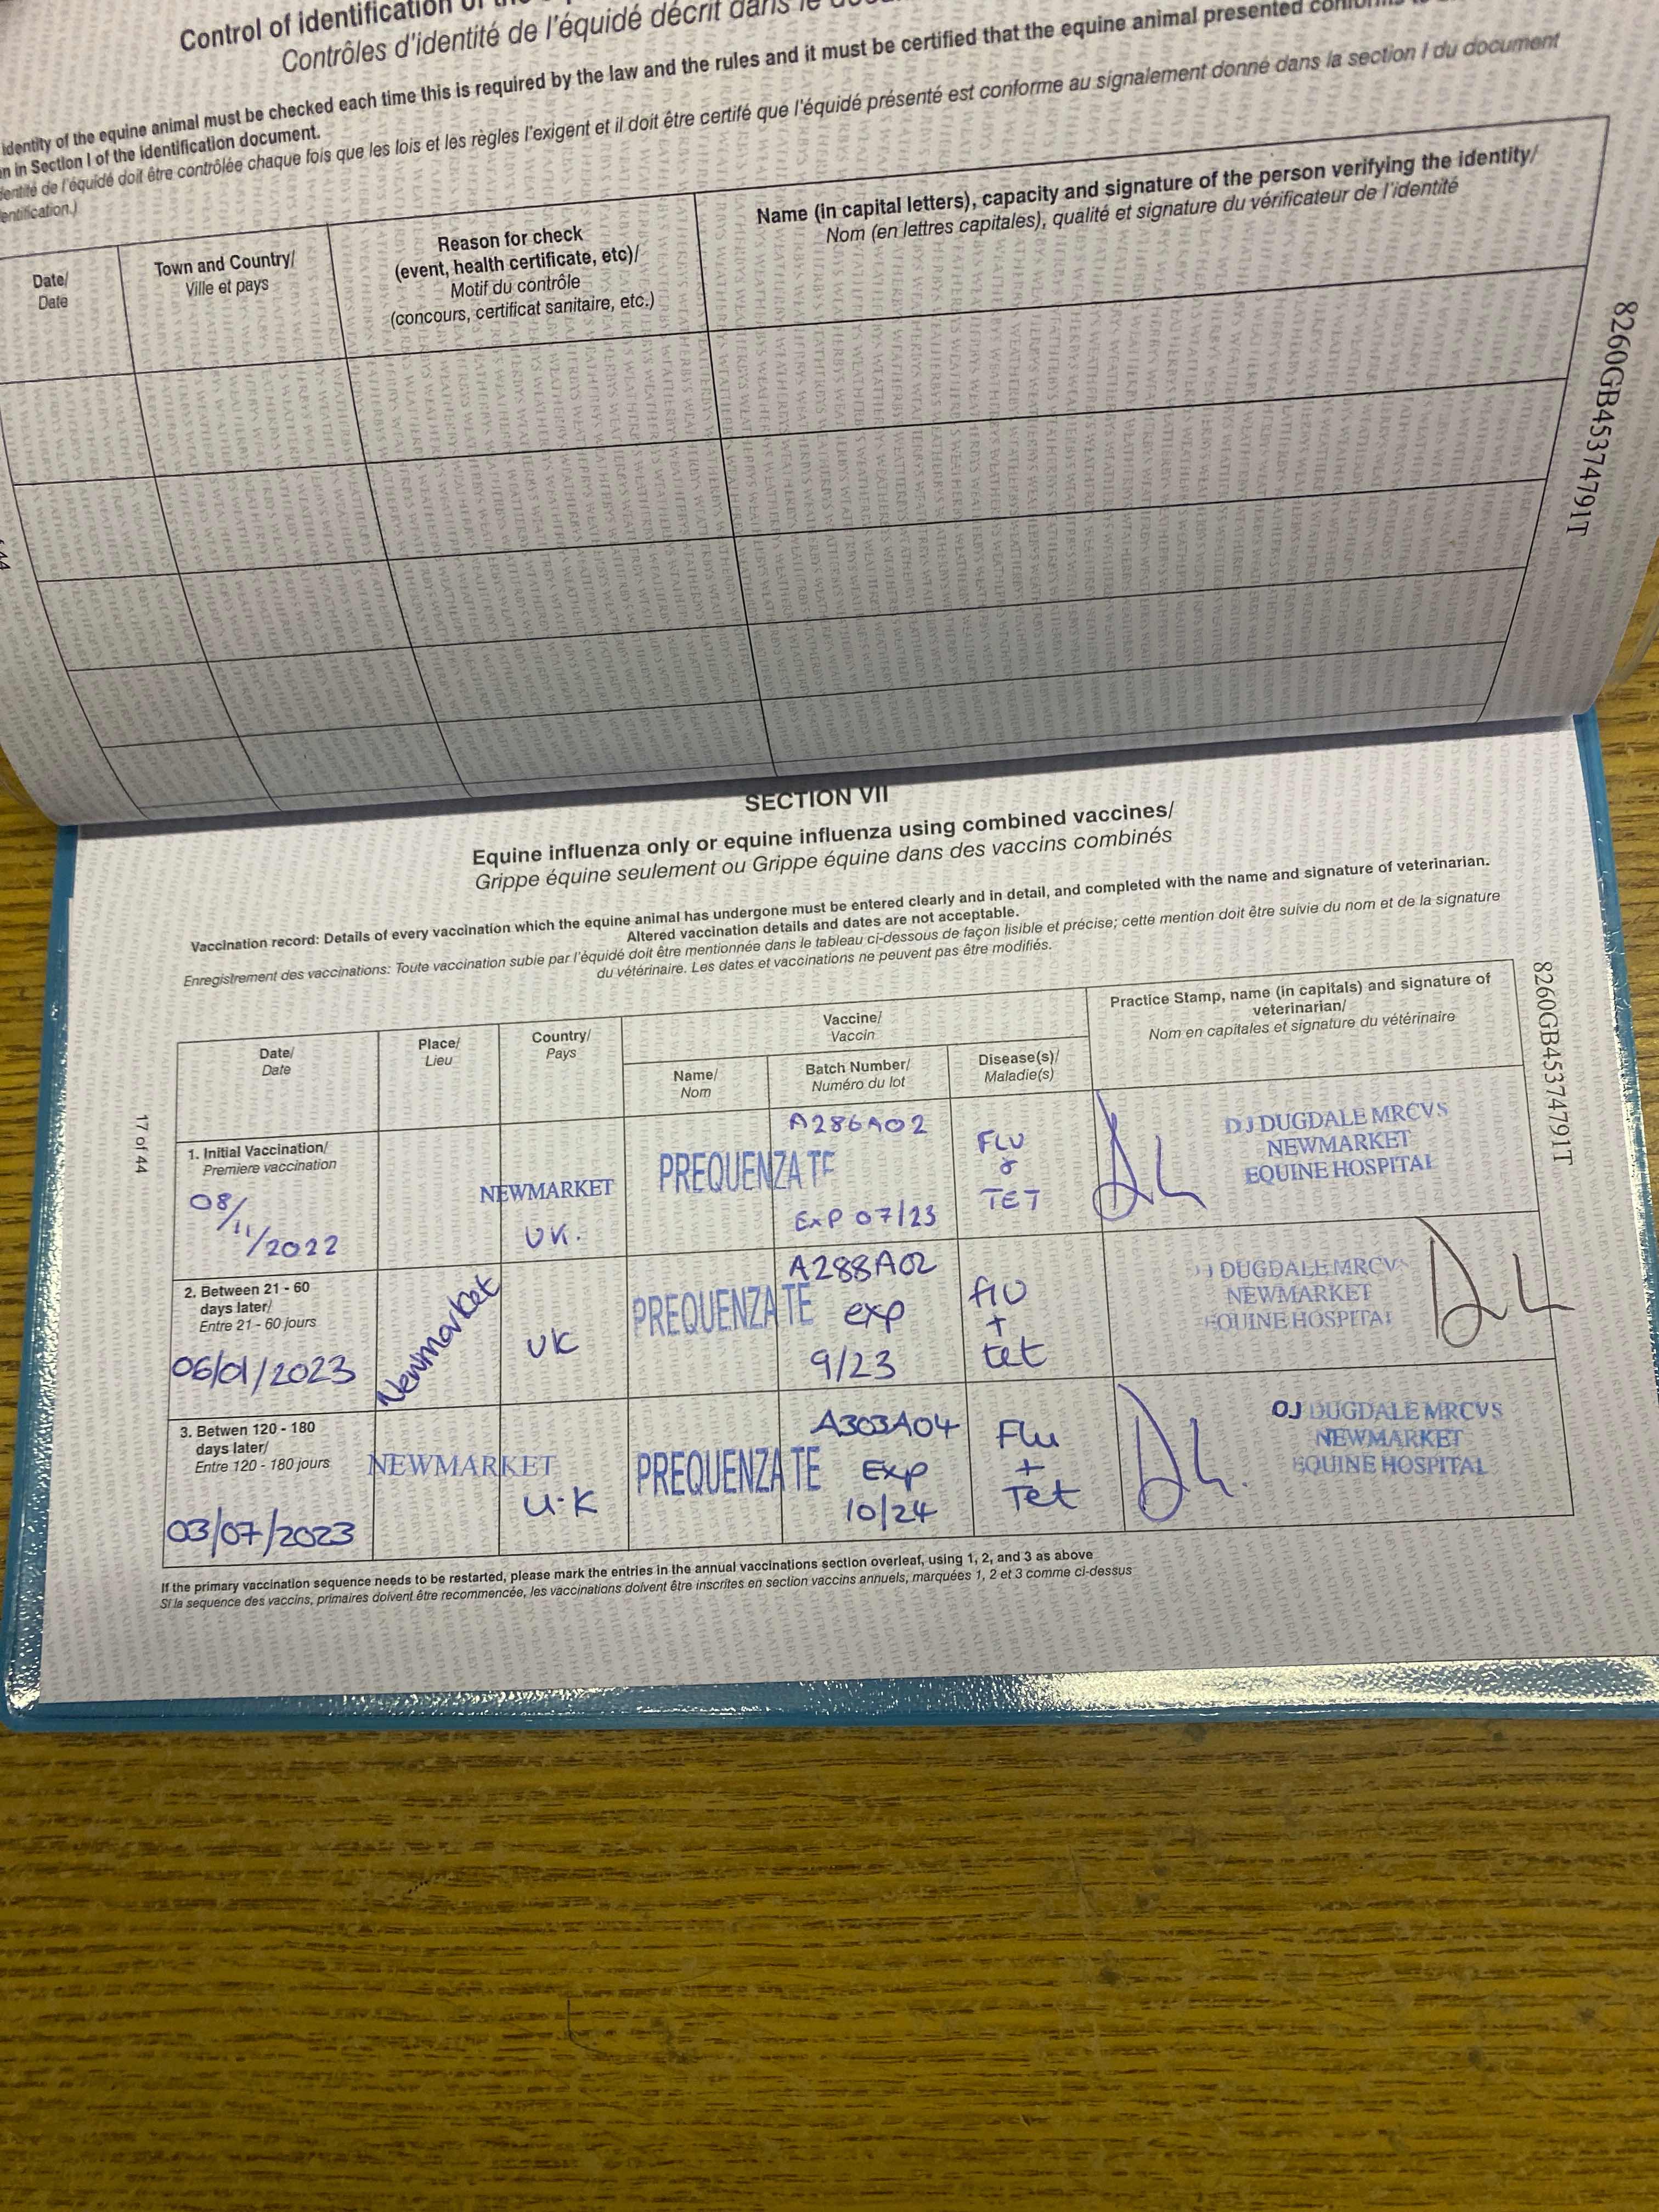 Control of identification of the
Contrôles d'identité de l'équidé décrit dans le
identity of the equine animal must be checked each time this is required by the law and the rules and it must be certified that the equine animal presented conforms to
in Section I of the identification document.
dentité de l'équidé doit être contrôlée chaque fois que les lois et les règles l'exigent et il doit être certifé que l'équidé présenté est conforme au signalement donné dans la section I du document
entification.)
Date/
Date
Town and Country/
Ville et pays
Reason for check
(event, health certificate, etc)/
Motif du contrôle
(concours, certificat sanitaire, etc.)
Name (in capital letters), capacity and signature of the person verifying the identity/
Nom (en lettres capitales), qualité et signature du vérificateur de l'identité
8260GB45374791T
SECTION VII
Equine influenza only or equine influenza using combined vaccines/
Grippe équine seulement ou Grippe équine dans des vaccins combinés
Vaccination record: Details of every vaccination which the equine animal has undergone must be entered clearly and in detail, and completed with the name and signature of veterinarian.
Altered vaccination details and dates are not acceptable.
Enregistrement des vaccinations: Toute vaccination subie par l'équidé doit être mentionnée dans le tableau ci-dessous de façon lisible et précise; cette mention doit être suivie du nom et de la signature
du vétérinaire. Les dates et vaccinations ne peuvent pas être modifiés.
Date/
Date
Place/
Lieu
Country/
Pays
Vaccine/
Vaccin
Name/
Nom
Batch Number/
Numéro du lot
Disease(s)/
Maladie(s)
Practice Stamp, name (in capitals) and signature of
veterinarian/
Nom en capitales et signature du vétérinaire
1. Initial Vaccination/
Premiere vaccination
08/11/2022
NEWMARKET
UK.
PREQUENZA TE
A286A02
Exp 07/23
FLU
&
TET
DJ DUGDALE MRCVS
NEWMARKET
EQUINE HOSPITAL
2. Between 21 - 60
days later/
Entre 21 - 60 jours
06/01/2023
Newmarket
UK
PREQUENZA TE
A288A02
exp
9/23
flu
+
tet
DJ DUGDALE MRCVS
NEWMARKET
EQUINE HOSPITAL
3. Betwen 120 - 180
days later/
Entre 120 - 180 jours
03/07/2023
NEWMARKET
U.K
PREQUENZA TE
A303A04
Exp
10/24
Flu
+
Tet
DJ DUGDALE MRCVS
NEWMARKET
EQUINE HOSPITAL
If the primary vaccination sequence needs to be restarted, please mark the entries in the annual vaccinations section overleaf, using 1, 2, and 3 as above
Si la sequence des vaccins, primaires doivent être recommencée, les vaccinations doivent être inscrites en section vaccins annuels, marquées 1, 2 et 3 comme ci-dessus
17 of 44
8260GB45374791T